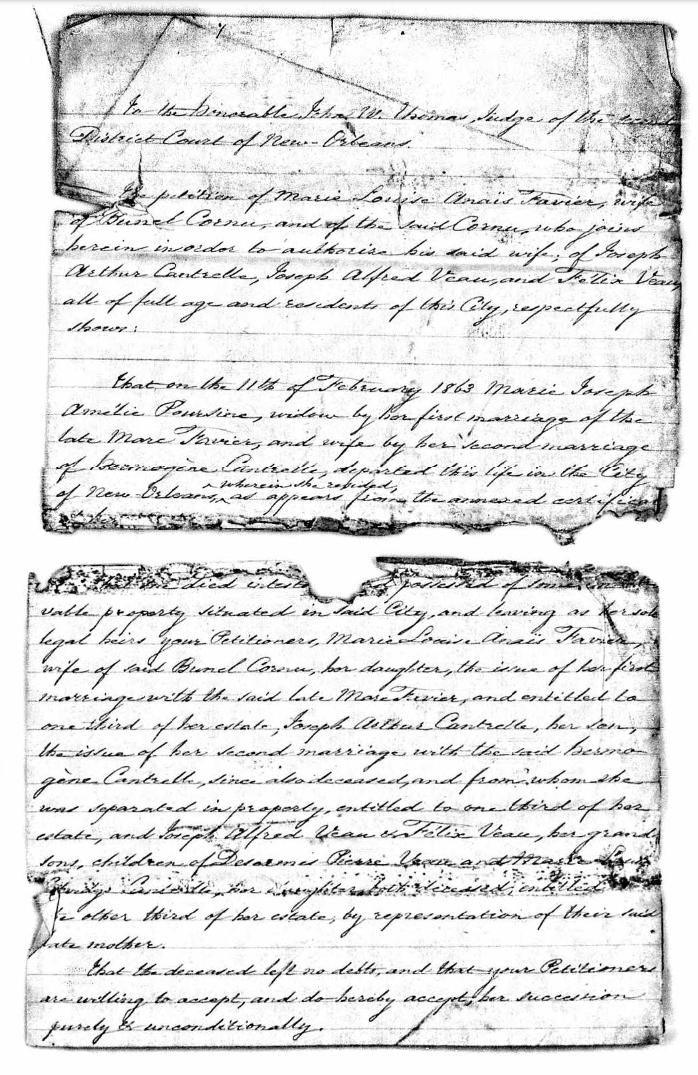 To the honorable John W. Thomas, Judge of the second
District Court of New-Orleans.
The petition of Marie Louise Anaïs Favier, wife
of Bunel Cornu, and of the said Cornu, who joins
herein in order to authorize his said wife; of Joseph
Arthur Cantrelle, Joseph Alfred Veau, and Félix Veau,
all of full age and residents of this City, respectfully
shows:
That on the 11th of February 1863 Marie Joseph
Amélie Poursine, widow by her first marriage of the
late Marc Favier, and wife by her second marriage
of hermogène Cantrelle, departed this life in the City
of New-Orleans, wherein she resided, as appears from the annexed certificate
died possessed of some
vable property situated in said City, and leaving as her sole
legal heirs your Petitioners, Marie Louise Anaïs Favier,
wife of said Bunel Cornu, her daughter, the issue of her first
marriage with the said late Marc Favier, and entitled to
one third of her estate, Joseph Arthur Cantrelle, her son,
the issue of her second marriage with the said hermo-
gène Cantrelle, since also deceased, and from whom she
was separated in property, entitled to one third of her
estate, and Joseph Alfred Veau & Félix Veau, her grand
sons, children of Desormes Pierre Veau and Marie
Cantrelle, her daughter, both deceased, entitled
other third of her estate, by representation of their said
late mother.
That the deceased left no debts, and that your Petitioners
are willing to accept, and do hereby accept, her succession
purely & unconditionally.